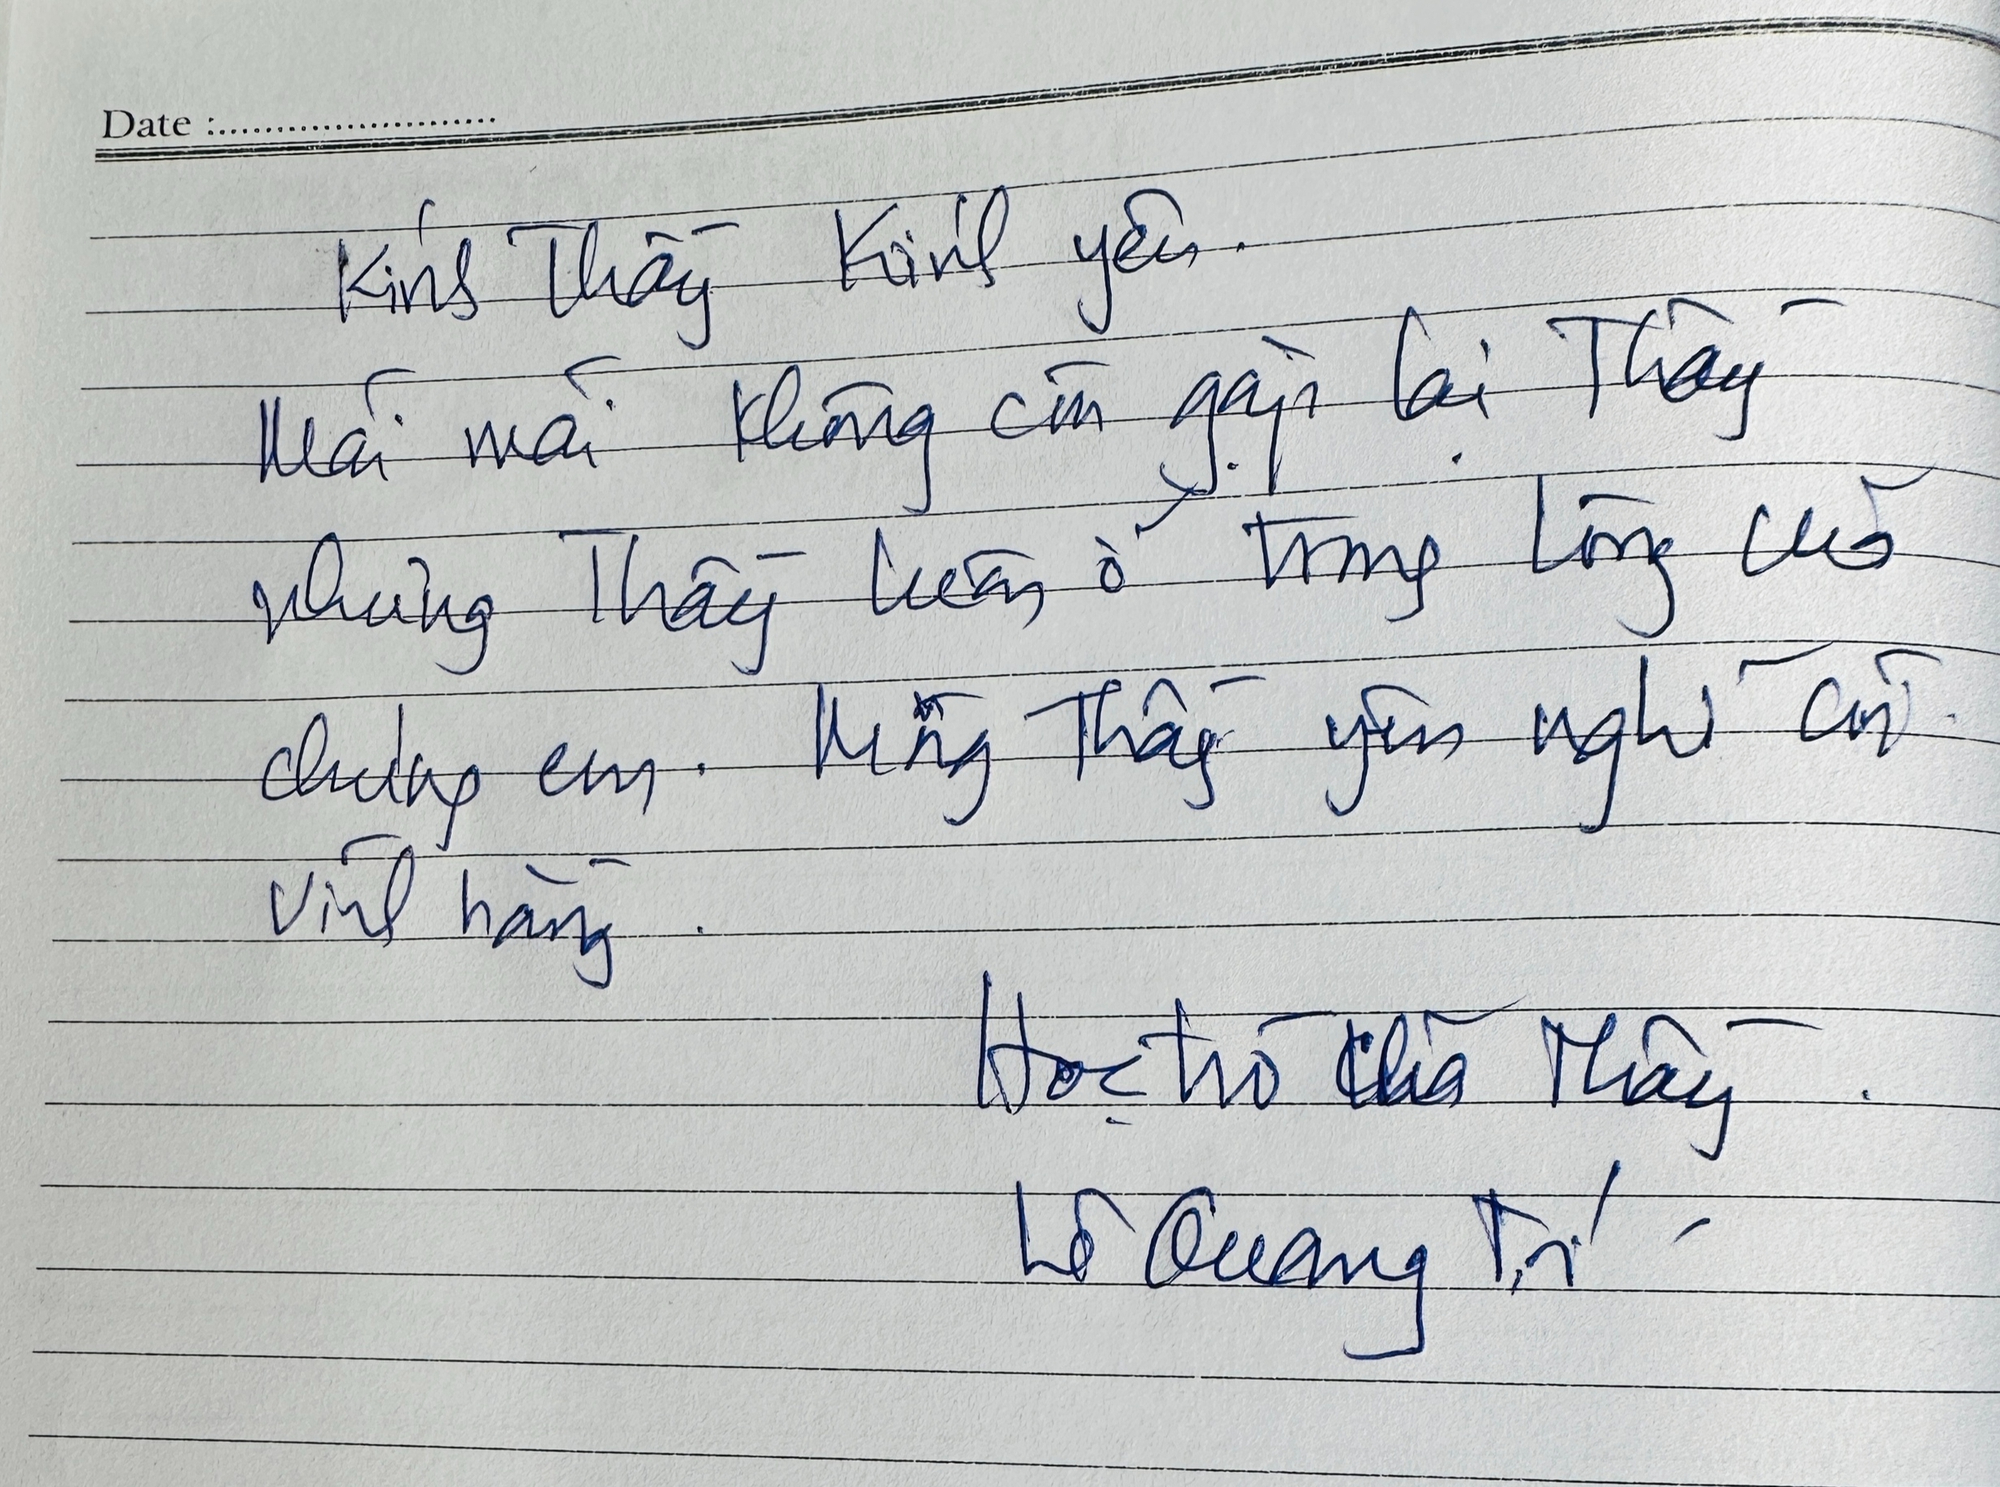 Date :........................
Kính Thầy Kính yêu.
Mãi mãi không còn gặp lại Thầy
nhưng Thầy luôn ở trong lòng của
chúng em. Mong Thầy yên nghỉ cõi
vĩnh hằng.
Học trò của Thầy.
Lê Quang Trí